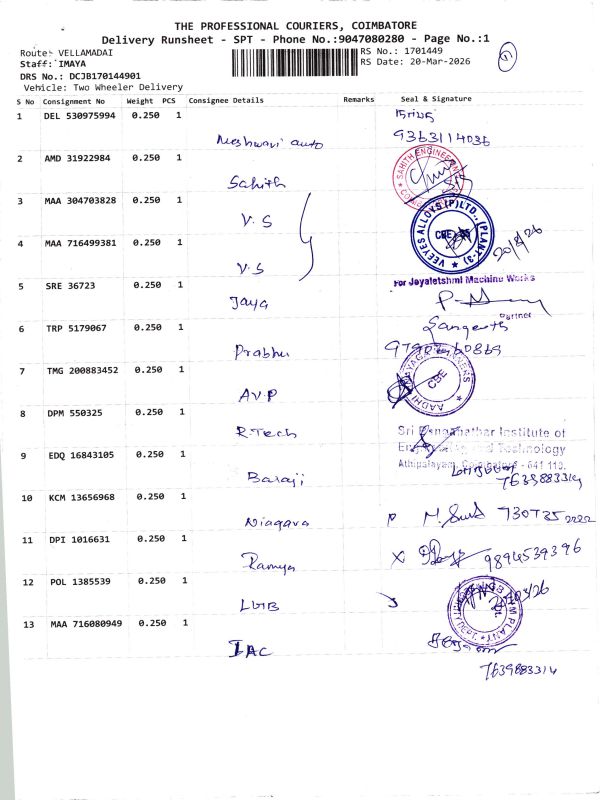 THE PROFESSIONAL COURIERS, COIMBATORE
Delivery Runsheet - SPT - Phone No.:9047080280 - Page No.:1
Route: VELLAMADAI
RS No.: 1701449
1
Staff: IMAYA
RS Date: 20-Mar-2026
DRS No.: DCJB170144901
Vehicle: Two Wheeler Delivery
S No Consignment No Weight PCS Consignee Details Remarks Seal & Signature
1 DEL 530975994 0.250 1
Meshwari auto 9363114036
2 AMD 31922984 0.250 1
Sahith SAHITH ENGINEERING
3 MAA 304703828 0.250 1
V.S VEEYES ALLOYS (P) LTD., (PLANT-3) CBE
4 MAA 716499381 0.250 1
V.S
5 SRE 36723 0.250 1
For Jeyaletshmi Machine Works
Jaya
Partner
6 TRP 5179067 0.250 1
Sangeeth
Prabhu
7 TMG 200883452 0.250 1
A.V.P CBE
8 DPM 550325 0.250 1
R.Tech Sri Institute of
and Technology
9 EDQ 16843105 0.250 1
Athipalayam, Coimbatore - 641 110.
Baraji 7639883314
10 KCM 13656968 0.250 1
Niagava
11 DPI 1016631 0.250 1
Ramya 9894539396
12 POL 1385539 0.250 1
13 MAA 716080949 0.250 1
IAC
7639883314